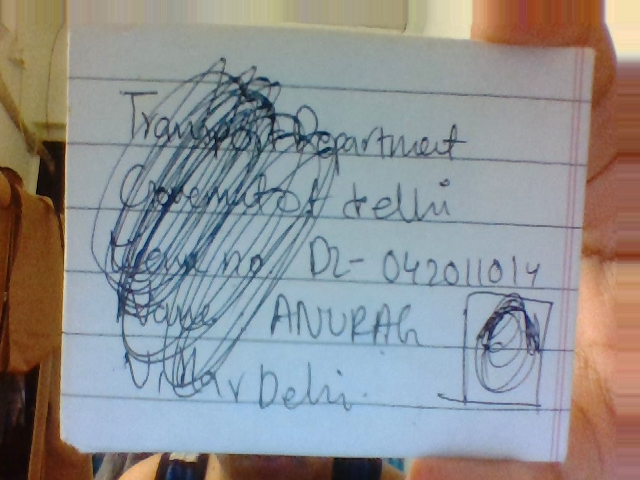 Transport Department
Government of delhi
no. DL-042011014
Name ANURAG
Delhi.